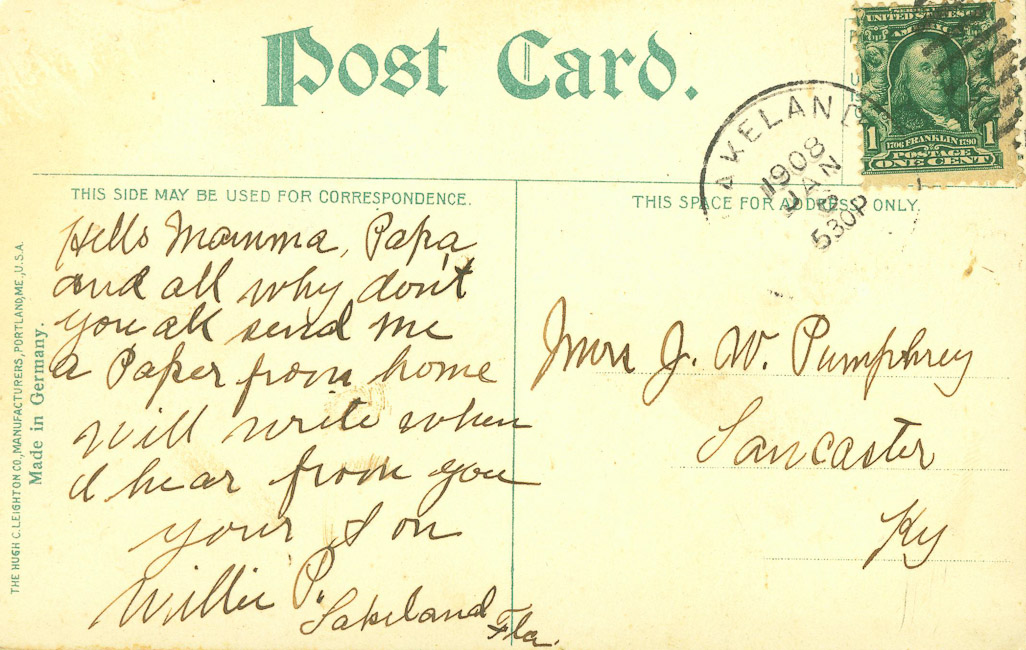 Post Card.
UNITED STATES OF
AMERICA
1 1706 FRANKLIN 1790 1
POSTAGE
ONE CENT
LAKELAND
1908
JAN
530P
THIS SIDE MAY BE USED FOR CORRESPONDENCE.
THIS SPACE FOR ADDRESS ONLY.
Hello Mamma, Papa
and all why don't
you all send me
a Paper from home
will write when
I hear from you
your Son
Willie P.
Lakeland Fla.
Mrs J. W. Pumphrey
Lancaster
Ky
THE HUGH C. LEIGHTON CO., MANUFACTURERS, PORTLAND, ME., U.S.A.
Made in Germany.